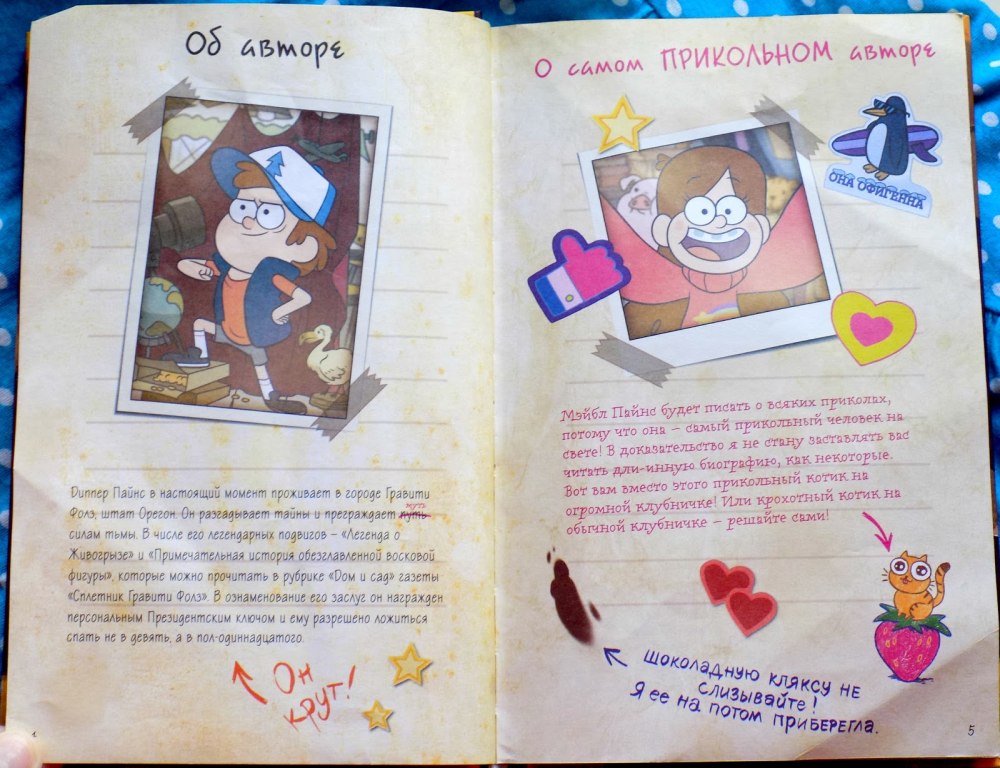 Об авторе
Диппер Пайнс в настоящий момент проживает в городе Гравити
Фолз, штат Орегон. Он разгадывает тайны и преграждает путь
силам тьмы. В числе его легендарных подвигов – «Легенда о
Живогрызе» и «Примечательная история обезглавленной восковой
фигуры», которые можно прочитать в рубрике «Дом и сад» газеты
«Сплетник Гравити Фолз». В ознаменование его заслуг он награжден
персональным Президентским ключом и ему разрешено ложиться
спать не в девять, а в пол-одиннадцатого.
Он
крут!
О самом ПРИКОЛЬНОМ авторе
ОНА ОФИГЕННА
Мэйбл Пайнс будет писать о всяких приколах,
потому что она – самый прикольный человек на
свете! В доказательство я не стану заставлять вас
читать дли-инную биографию, как некоторые.
Вот вам вместо этого прикольный котик на
огромной клубничке! Или крохотный котик на
обычной клубничке – решайте сами!
Шоколадную кляксу не
слизывайте!
Я ее на потом приберегла.
5